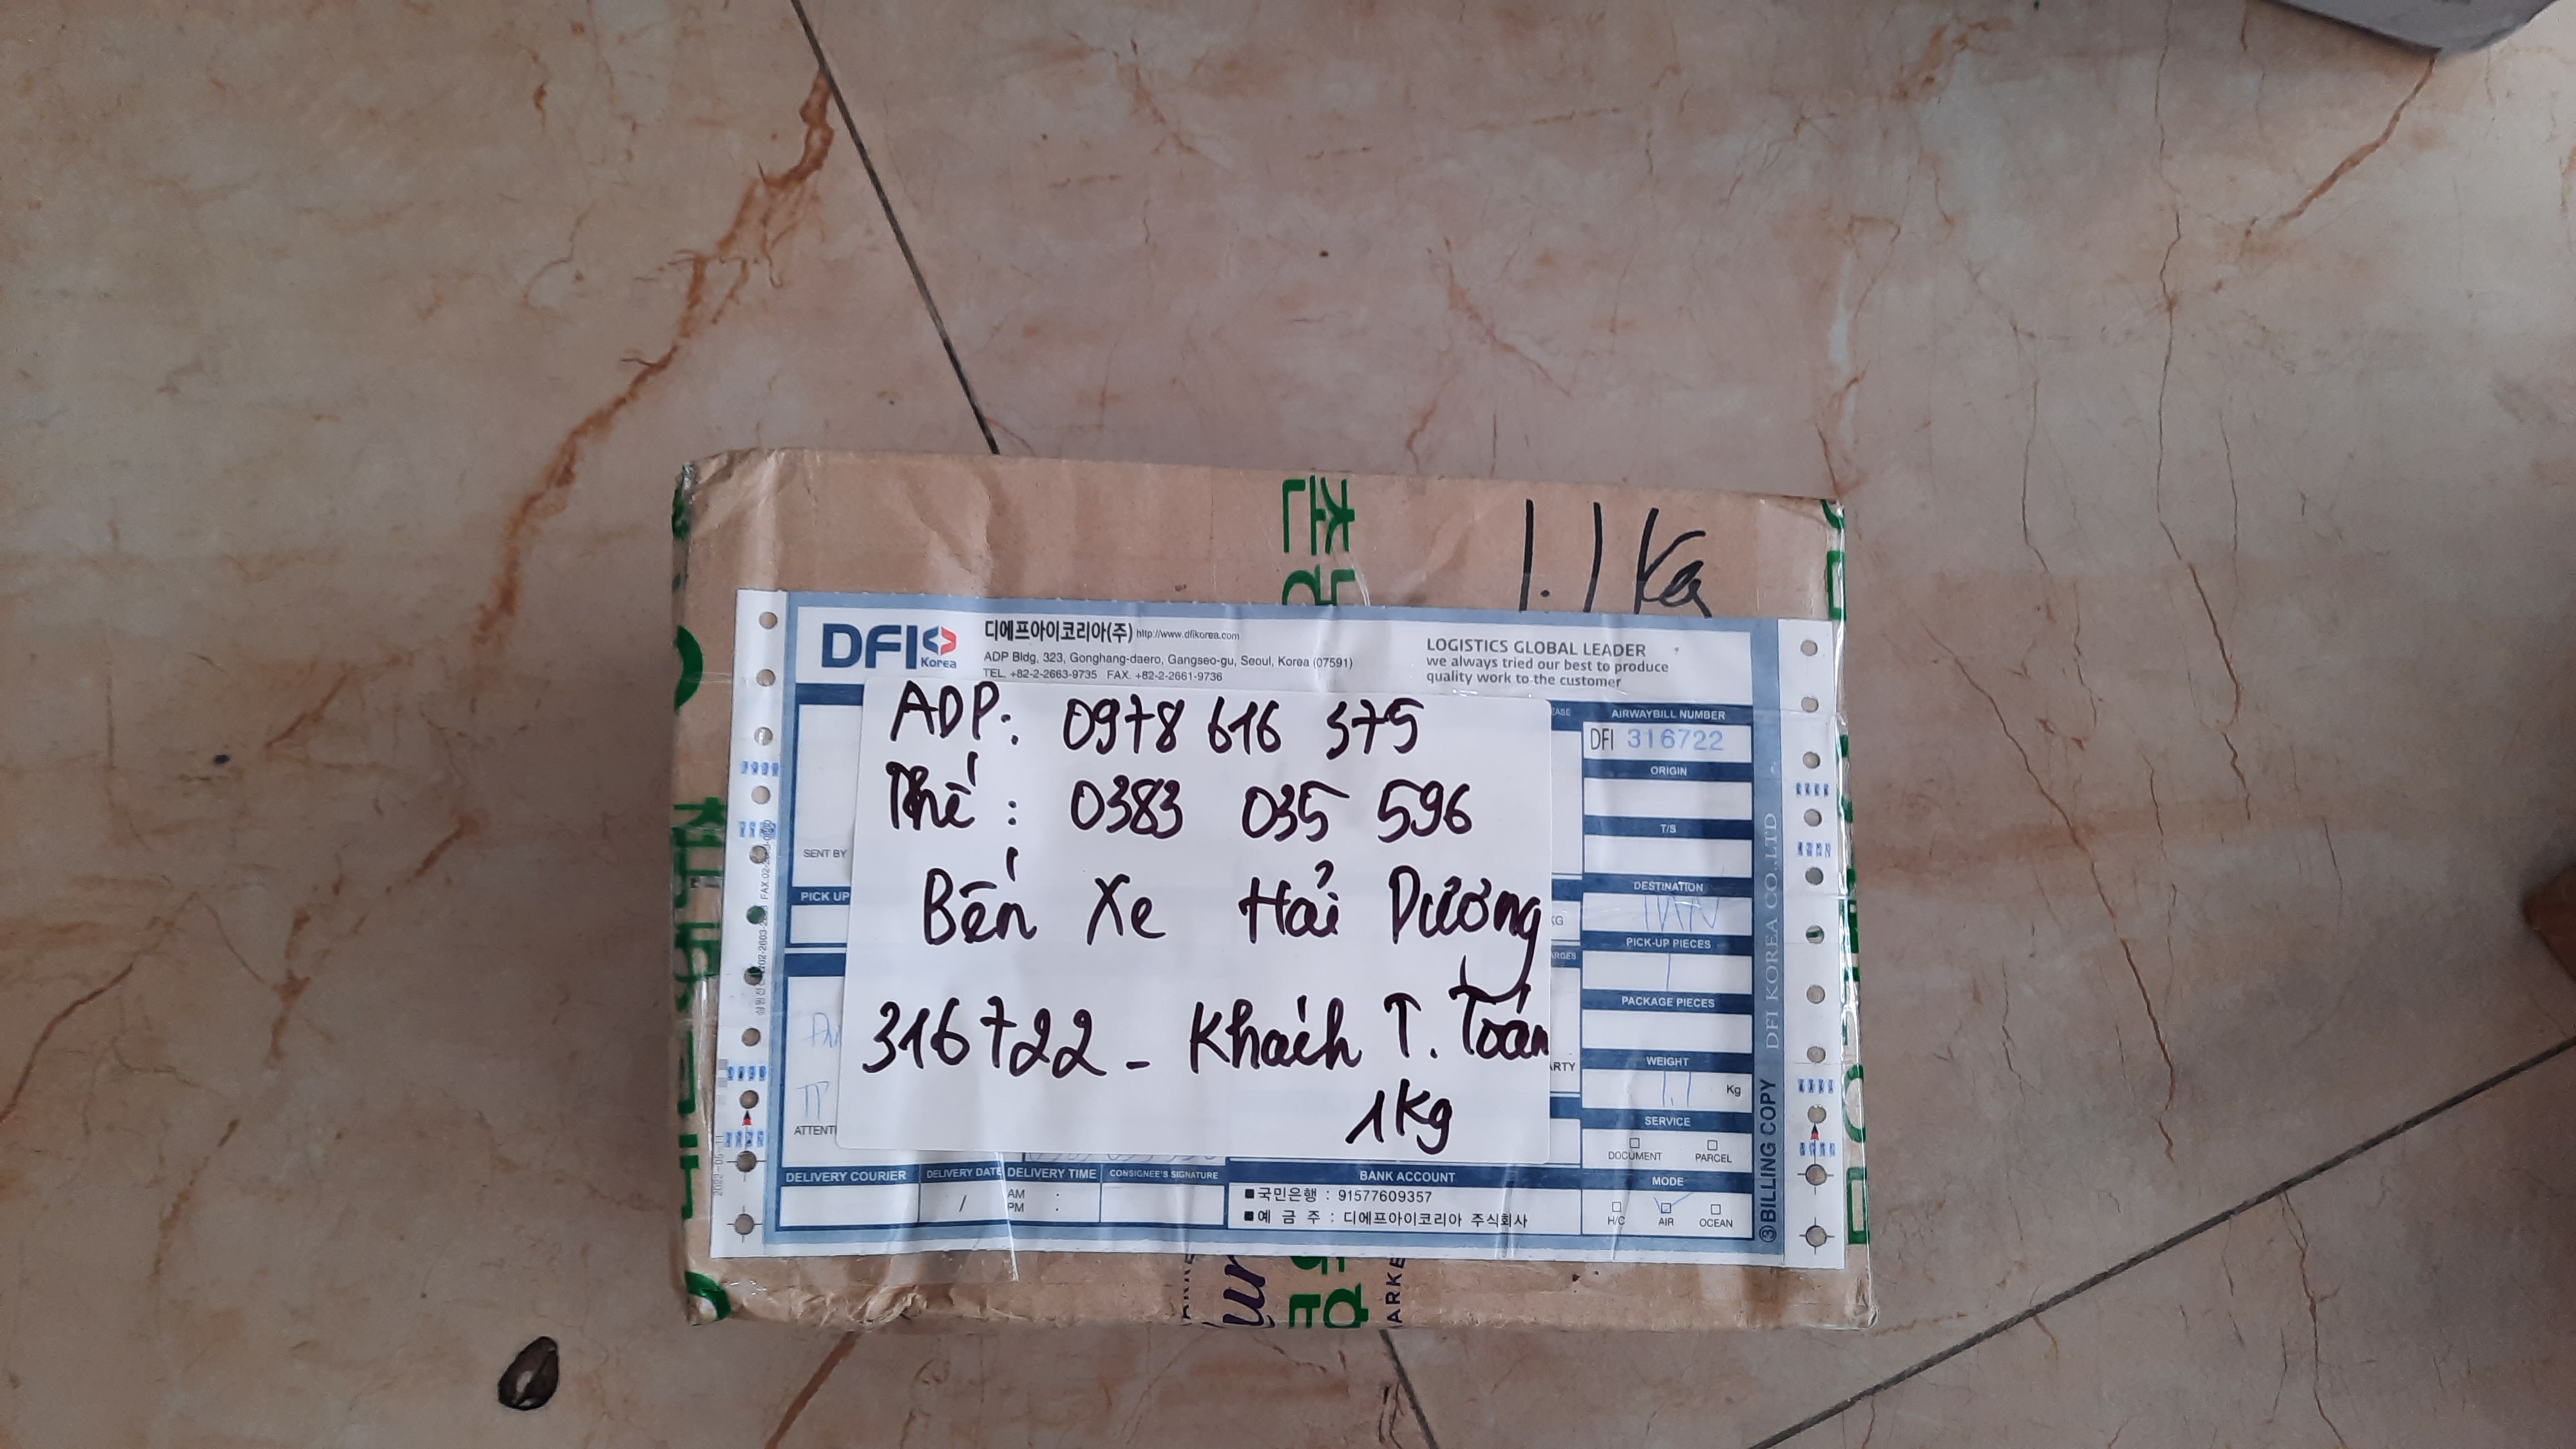 1.1 Kg
DFI Korea
디에프아이코리아(주) http://www.dfikorea.com
ADP Bldg, 323, Gonghang-daero, Gangseo-gu, Seoul, Korea (07591)
TEL. +82-2-2663-9735 FAX. +82-2-2661-9736
LOGISTICS GLOBAL LEADER
we always tried our best to produce
quality work to the customer
ADP: 0978 616 375
Thế : 0383 035 596
Bến Xe Hải Dương
316722 - Khách T. Toán
1Kg
SENT BY
PICK UP
AIRWAYBILL NUMBER
DFI 316722
ORIGIN
T/S
DESTINATION
PICK-UP PIECES
1
PACKAGE PIECES
WEIGHT
1.1 Kg
SERVICE
DOCUMENT PARCEL
MODE
H/C AIR OCEAN
DELIVERY COURIER DELIVERY DATE DELIVERY TIME CONSIGNEE'S SIGNATURE
/ AM :
PM :
BANK ACCOUNT
■국민은행 : 91577609357
■예 금 주 : 디에프아이코리아 주식회사
③BILLING COPY DFI KOREA CO.,LTD